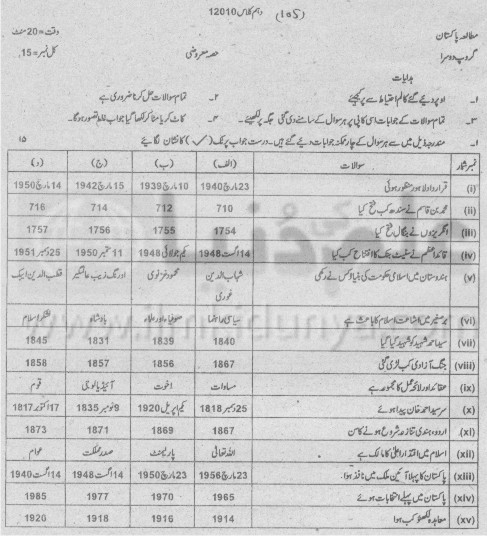 (105) دہم کلاس 12010
مطالعہ پاکستان وقت = 20 منٹ
گروپ دوسرا حصہ معروضی کل نمبر = 15
ہدایات
۱۔ اوپر دیئے گئے کالم احتیاط سے پر کیجئے ۲۔ تمام سوالات حل کرنا ضروری ہے
۳۔ تمام سوالات کے جوابات اسی کاپی پر ہر سوال کے سامنے دی گئی جگہ پر لکھیئے۔ ۴۔ کاٹ کر یا مٹا کر لکھا گیا جواب غلط تصور ہوگا۔
۱۔ مندرجہ ذیل میں سے ہر سوال کے چار ممکنہ جوابات دیئے گئے ہیں۔ درست جواب پر ٹک (✓) کا نشان لگائیے ۱۵
نمبر شمار سوالات (الف) (ب) (ج) (د)
(i) قرارداد لاہور منظور ہوئی 23 مارچ 1940 10 مارچ 1939 15 مارچ 1942 14 مارچ 1950
(ii) محمد بن قاسم نے سندھ کب فتح کیا 710 712 714 716
(iii) انگریزوں نے بنگال فتح کیا 1754 1755 1756 1757
(iv) قائداعظم نے سٹیٹ بنک کا افتتاح کب کیا 14 اگست 1948 یکم جولائی 1948 11 ستمبر 1950 25 دسمبر 1951
(v) ہندوستان میں اسلامی حکومت کی بنیاد کس نے رکھی شہاب الدین غوری محمود غزنوی اورنگ زیب عالمگیر قطب الدین ایبک
(vi) برصغیر میں اشاعت اسلام کا باعث ہے سیاسی راہنما صوفیاء اور علماء بادشاہ لشکر اسلام
(vii) سید احمد شہید کو شہید کیا گیا 1840 1839 1831 1845
(viii) جنگ آزادی کب لڑی گئی 1867 1856 1857 1858
(ix) عقائد اور لائحہ عمل کا مجموعہ ہے مساوات اخوت آئیڈیالوجی قوم
(x) سر سید احمد خان پیدا ہوئے 25 دسمبر 1818 یکم اپریل 1920 9 نومبر 1835 17 اکتوبر 1817
(xi) اردو، ہندی تنازعہ شروع ہونے کا سن 1869 1867 1871 1873
(xii) اسلام میں اقتدار اعلیٰ کا مالک ہے اللہ تعالیٰ پارلیمنٹ صدر مملکت عوام
(xiii) پاکستان کا پہلا آئین ملک میں نافذ ہوا۔ 23 مارچ 1956 23 مارچ 1950 14 اگست 1948 14 اگست 1940
(xiv) پاکستان میں پہلے انتخابات ہوئے 1965 1970 1977 1985
(xv) معاہدہ لکھنؤ کب ہوا 1914 1916 1918 1920